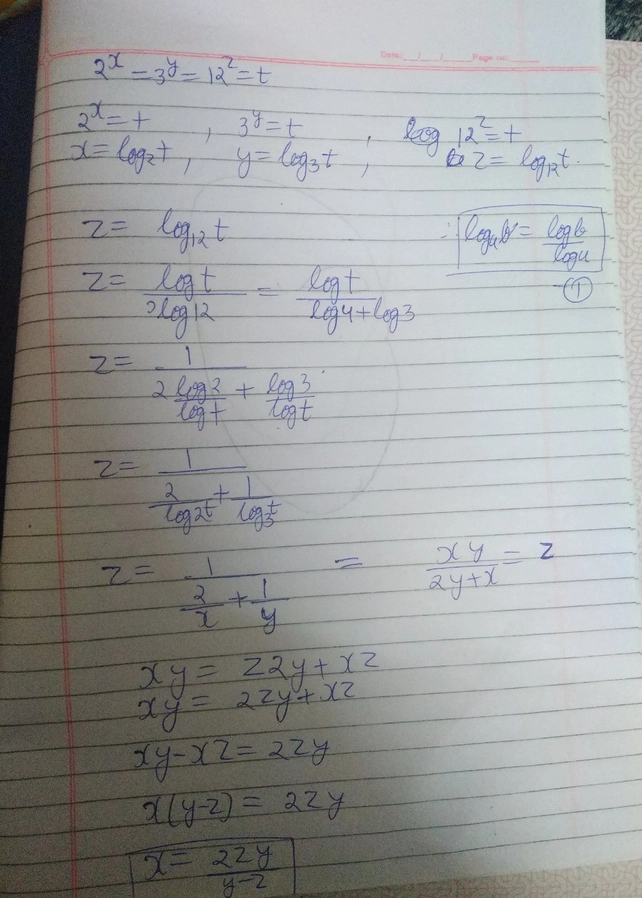 Date: __/__/__ Page no: ____
2^x = 3^y = 12^z = t
2^x = t , 3^y = t , 12^z = t
x = log₂t , y = log₃t , z = log₁₂t.
z = log₁₂t
logₐb = logb/loga
z = logt/log12 = logt/(log4+log3) -①
z = 1/(2 log2/logt + log3/logt)
z = 1/(2/log₂t + 1/log₃t)
z = 1/(2/x + 1/y) = xy/(2y+x) = z
xy = z2y + xz
xy = 2zy + xz
xy-xz = 2zy
x(y-z) = 2zy
x = 2zy/(y-z)